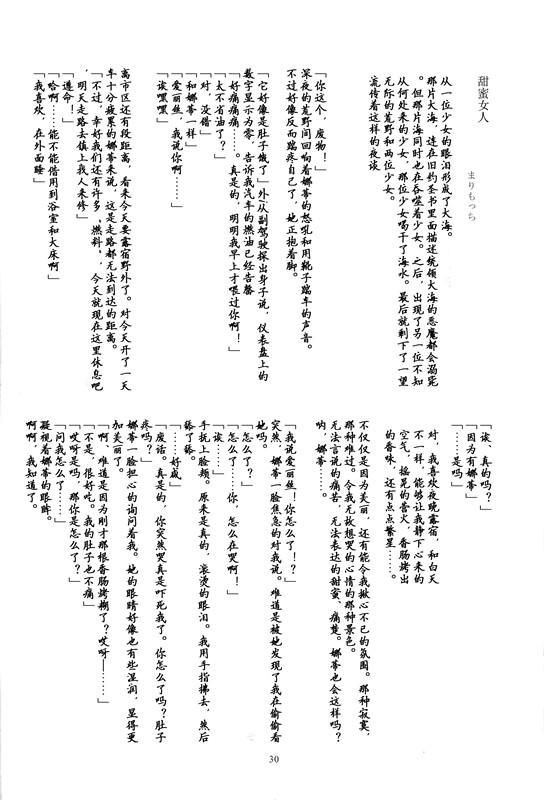 甜蜜女人
まりもっち
从一位少女的眼泪形成了大海。
那片大海，连在旧约圣书里面描述统领大海的恶魔都会溺毙
。但那片海同时也在吞噬着少女。之后，出现了另一位不知
从何处来的少女，那位少女喝干了海水。最后就剩下了一望
无际的荒野和两位少女。
流传着这样的夜谈
「你这个，废物！」
深夜的荒野间回响着娜蒂的怒吼和用靴子踹车的声音。
不过好像反而踹疼自己了，她正抱着脚。
「它好像是肚子饿了」外从副驾驶探出身子说，仪表盘上的
数字显示为零，告诉我汽车的燃油已经告罄
「好痛痛痛……。真是的，明明我早上才喂过你啊！」
「太不省油了？」
「对，没错」
「和娜蒂一样」
「爱丽丝，我说你啊……」
「诶嘿嘿」
离市区还有段距离，看来今天要露宿野外了。对今天开了一天
车十分疲累的娜蒂来说，这是走路都无法到达的距离。
「不过，幸好我们还有许多、燃料、，今天就现在这里休息吧
，明天走路去镇上找人来修」
「遵命！」
「哈啊……能不能借用到浴室和大床啊」
「我喜欢，在外面睡」
「诶、真的吗？」
「因为有娜蒂」
「……是吗」
对，我喜欢夜晚露宿，和白天
不一样，能够让我静下心来的
空气，摇晃的营火，香肠烤出
的香味，还有点点繁星……。
不仅仅是因为美丽，还有能令我揪心不已的氛围。那种寂寞，
那种难过。令我无故想哭的心情的那种景色。
无法言说的痛苦，无法表达的甜蜜、痛楚。娜蒂也会这样吗？
呐，娜蒂……。
「我说爱丽丝！你怎么了！？」
突然，娜蒂一脸焦急的对我说。难道是被她发现了我在偷偷看
她吗。
「怎么了？」
「怎么了……你，怎么在哭啊！」
「诶……」
手抚上脸颊。原来是真的，滚烫的眼泪。我用手指拂去，然后
舔了舔。
「……好咸」
「废话。真是的，你突然哭真是吓死我了。你怎么了吗？肚子
疼吗？」
娜蒂一脸担心的询问着我。她的眼睛好像也有些湿润，显得更
加美丽了。
「啊、难道是因为刚才那根香肠烤糊了？哎呀——……」
「不是，很好吃。我的肚子也不痛」
「哎呀是吗，那你是怎么了？」
「问我怎么了……」
凝视着娜蒂的眼眸。
啊啊，我知道了。
30